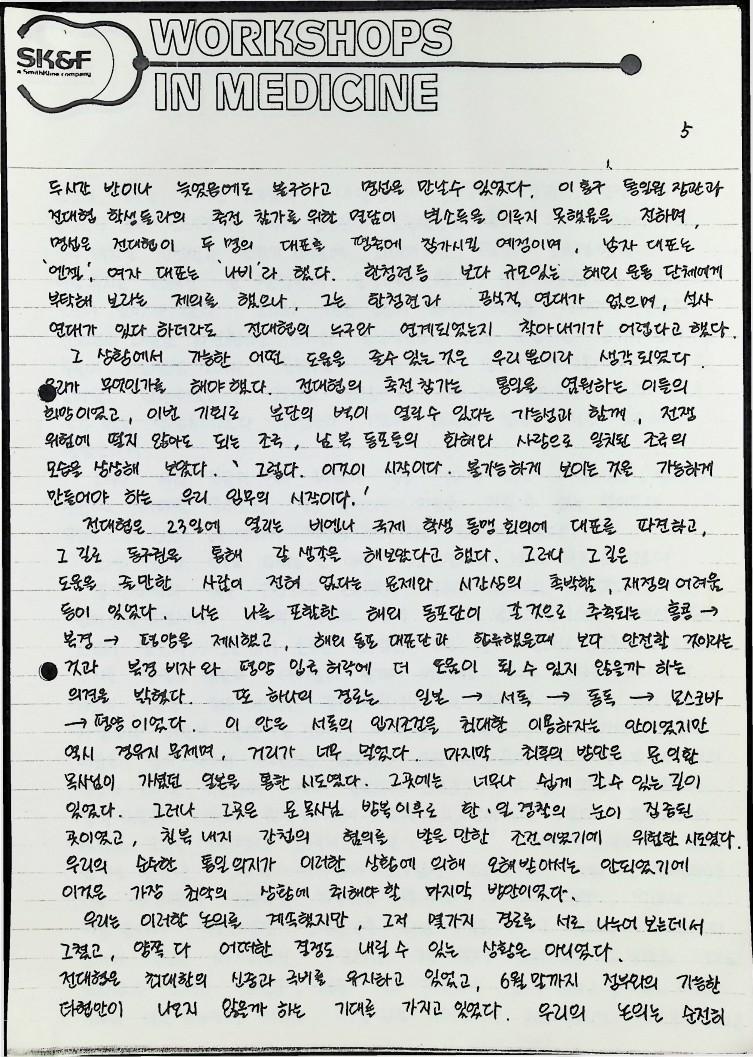 SK&F
a SmithKline company
WORKSHOPS
IN MEDICINE
5
두시간 반이나 늦었음에도 불구하고 명선을 만날수 있었다. 이 홍구 통일원 장관과
전대협 학생들과의 축전 참가를 위한 면담이 별소득을 이루지 못했음을 전하며,
명선은 전대협이 두 명의 대표를 평축에 참가시킬 예정이며, 남자 대표는
'엔젤', 여자 대표는 '나비'라 했다. 한청련등 보다 규모있는 해외 운동 단체에게
부탁해 보라는 제의를 했으나, 그는 한청련과 공식적 연대가 없으며, 설사
연대가 있다 하더라도 전대협의 누구와 연계되었는지 찾아내기가 어렵다고 했다.
그 상황에서 가능한 어떤 도움을 줄수 있는 것은 우리뿐이라 생각되었다.
우리가 무엇인가를 해야 했다. 전대협의 축전 참가는 통일을 염원하는 이들의
희망이었고, 이번 기회로 분단의 벽이 열릴수 있다는 가능성과 함께, 전쟁
위험에 떨지 않아도 되는 조국, 남북 동포들의 화해와 사랑으로 일치된 조국의
모습을 상상해 보았다. ' 그렇다. 이것이 시작이다. 불가능하게 보이는 것을 가능하게
만들어야 하는 우리 임무의 시작이다.'
전대협은 23일에 열리는 비엔나 국제 학생 동맹 회의에 대표를 파견하고,
그 길로 동구권을 통해 갈 생각을 해보았다고 했다. 그러나 그 길은
도움을 줄만한 사람이 전혀 없다는 문제와 시간상의 촉박함, 재정의 어려움
등이 있었다. 나는 나를 포함한 해외 동포단이 갈 것으로 추측되는 홍콩 →
북경 → 평양을 제시했고, 해외 동포 대표단과 합류했을때 보다 안전할 것이라는
것과 북경 비자와 평양 입국 허락에 더 도움이 될 수 있지 않을까 하는
의견을 밝혔다. 또 하나의 경로는 일본 → 서독 → 동독 → 모스코바
→ 평양이었다. 이 안은 서독의 입지조건을 최대한 이용하자는 안이었지만
역시 경유지 문제며, 거리가 너무 멀었다. 마지막 최후의 방안은 문익환
목사님이 가셨던 일본을 통한 시도였다. 그곳에는 너무나 쉽게 갈수 있는 길이
있었다. 그러나 그곳은 문 목사님 방북이후로 한.일 경찰의 눈이 집중된
곳이었고, 친북 내지 간첩의 혐의를 받을 만한 조건이었기에 위험한 시도였다.
우리의 순수한 통일의지가 이러한 상황에 의해 오해받아서는 안되었기에
이것은 가장 최악의 상황에 취해야 할 마지막 방안이었다.
우리는 이러한 논의를 계속했지만, 그저 몇가지 경로를 서로 나누어 보는데서
그쳤고, 양쪽 다 어떠한 결정도 내릴 수 있는 상황은 아니었다.
전대협은 최대한의 신중과 극비를 유지하고 있었고, 6월 말까지 정부와의 가능한
타협안이 나오지 않을까 하는 기대를 가지고 있었다. 우리의 논의는 순전히